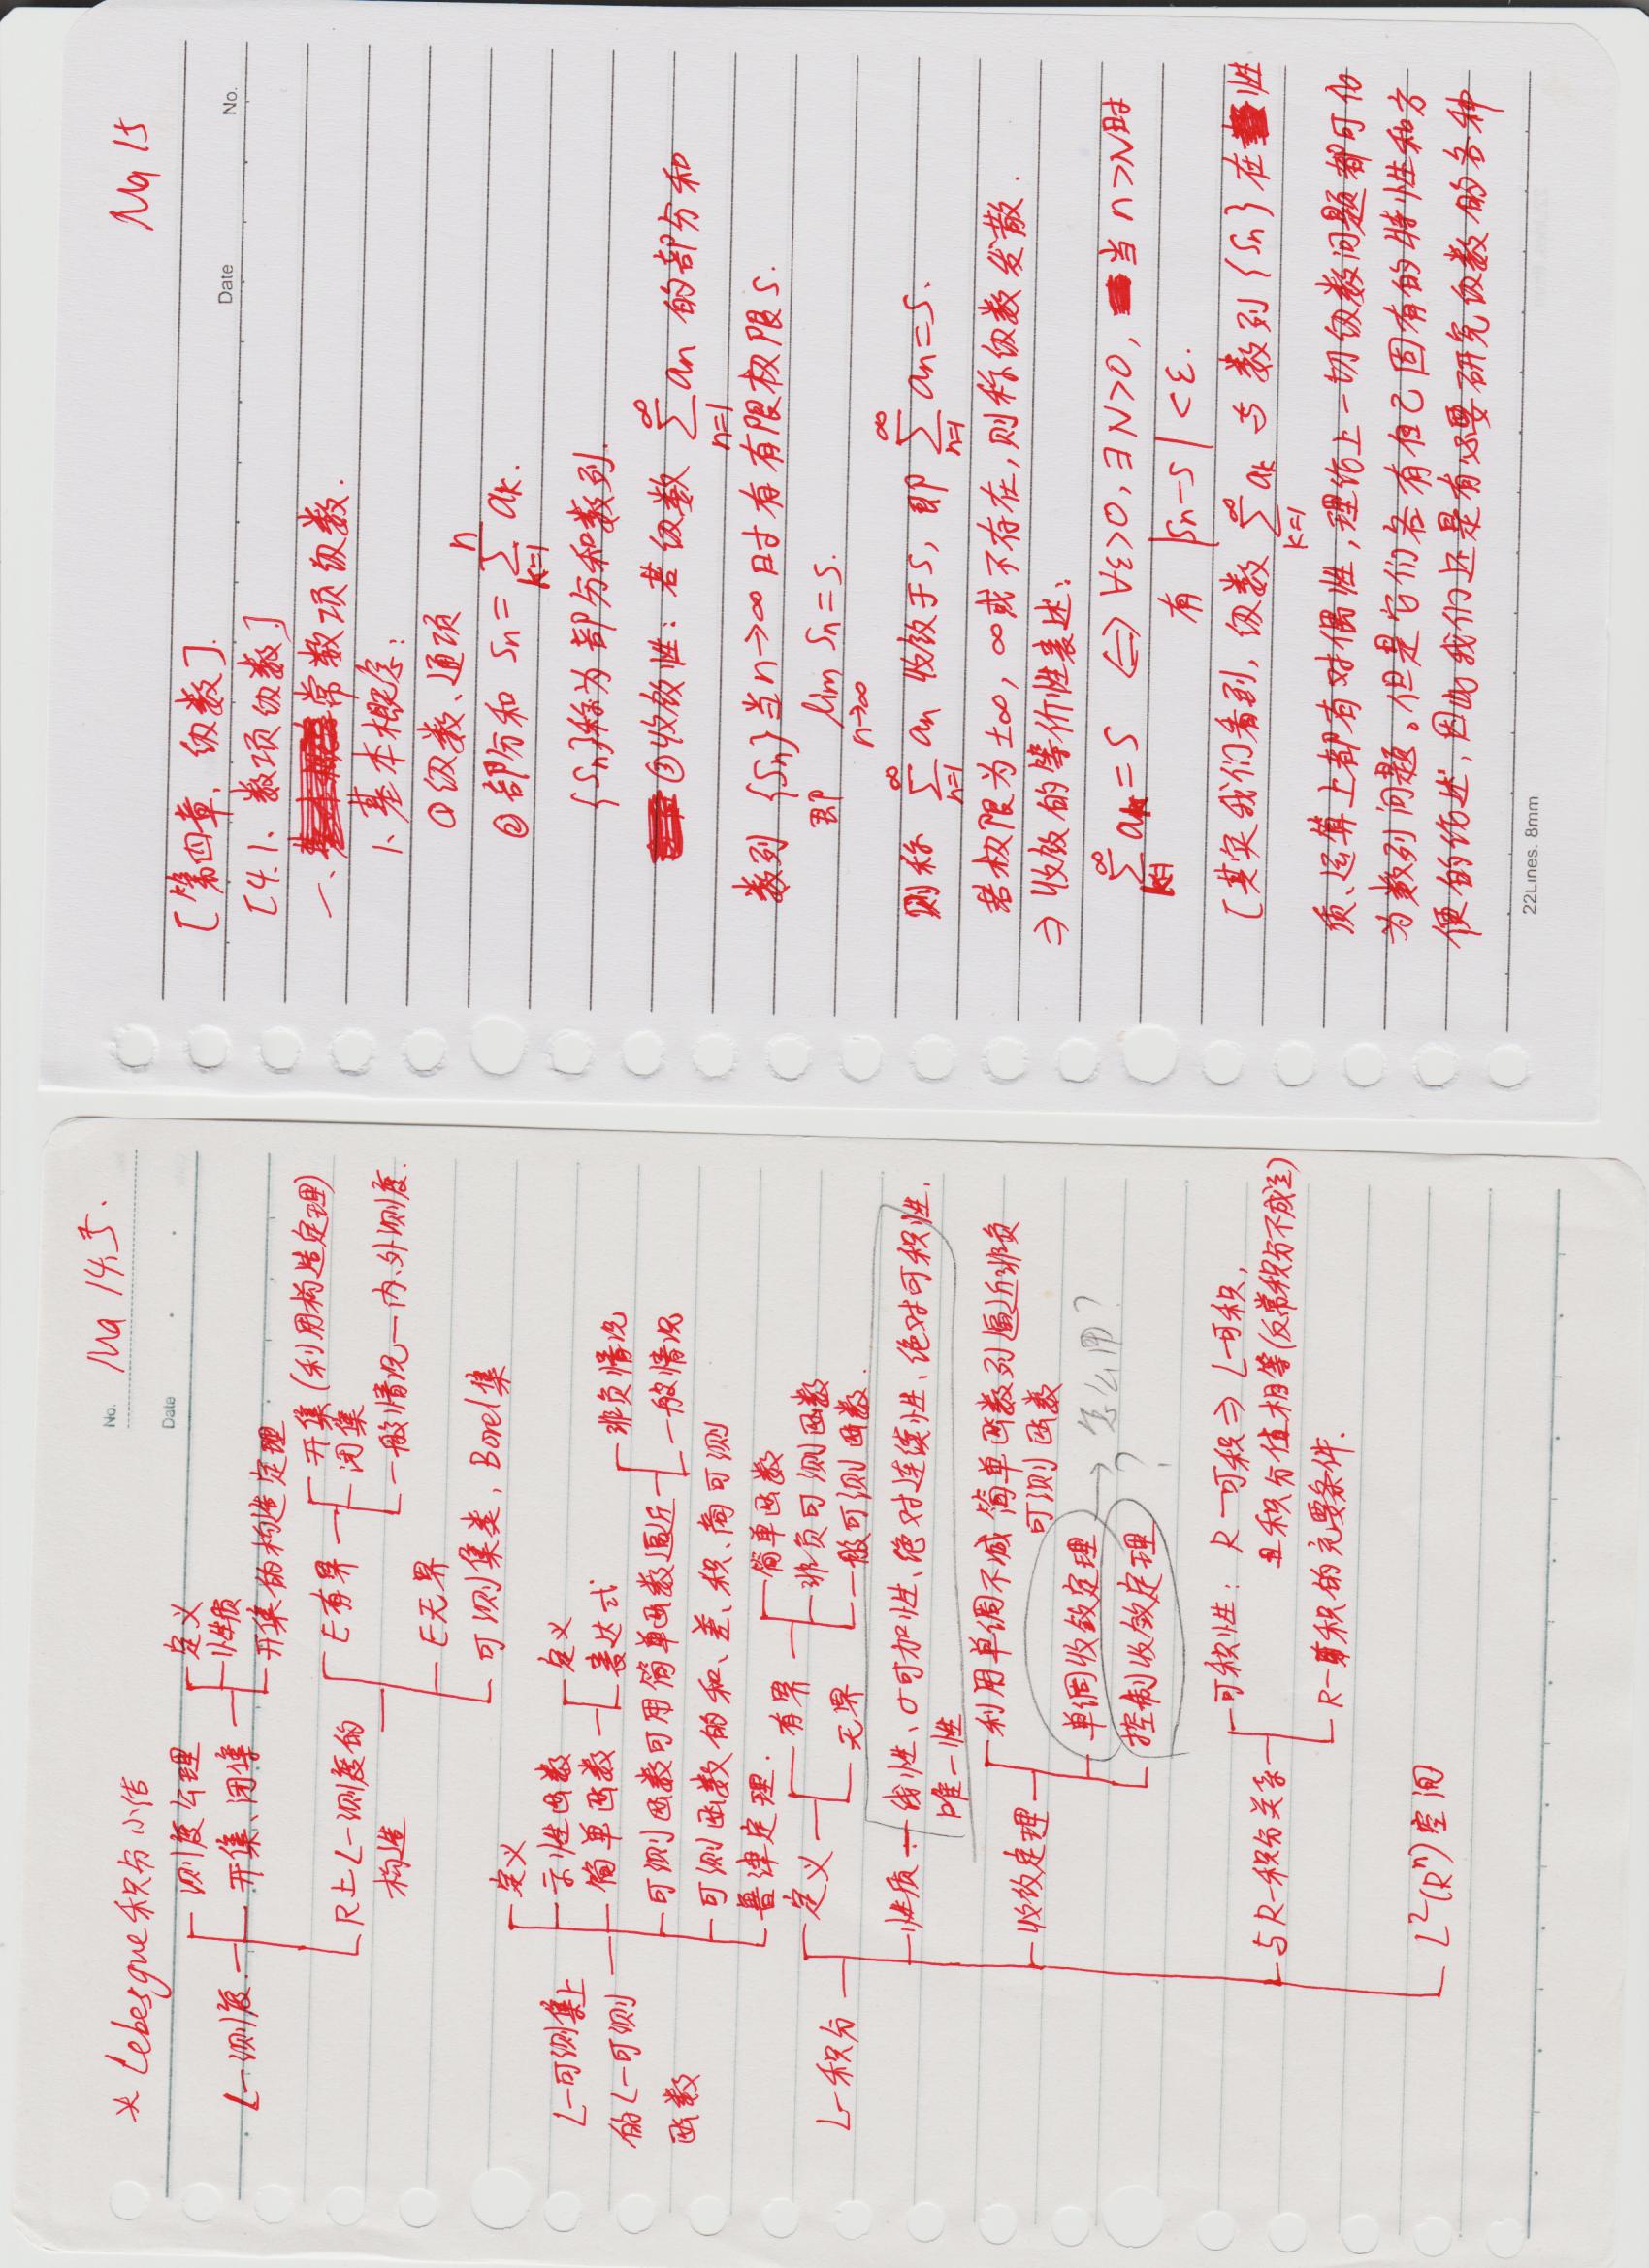 No. Ma 14.5.
* Lebesgue 积分小结
Date
L-测度
测度公理
开集、闭集
定义
性质
开集的构造定理
R上L-测度的
构造
E有界
开集(利用构造定理)
闭集
一般情况—内、外测度.
E无界
可测集类, Borel集
L-可测集上
的L-可测
函数
定义
示性函数
简单函数
定义
表达式
可测函数可用简单函数逼近
非负情况
一般情况
可测函数的和、差、积、商可测
鲁津定理.
L-积分
定义
有界
简单函数
非负可测函数
一般可测函数.
无界
性质 — 线性、σ可加性、绝对连续性、绝对可积性,
唯一性
收敛定理
利用单调不减简单函数列逼近非负
可测函数
单调收敛定理 → 怎么用?
控制收敛定理 ?
与R-积分关系
可积性: R-可积⇒L-可积,
且积分值相等(反常积分不成立)
R-可积的充要条件.
L²(Rⁿ)空间
Ma 15
Date No.
[第四章、级数].
[4.1、数项级数]
一、常数项级数.
1、基本概念:
①级数、通项
②部分和 Sn = ∑_{k=1}^{n} ak.
{Sn}称为部分和数列.
③收敛性: 若级数 ∑_{n=1}^{∞} an 的部分和
数列 {Sn}当n→∞时有有限极限S.
即 lim_{n→∞} Sn = S.
则称 ∑_{n=1}^{∞} an 收敛于S, 即 ∑_{n=1}^{∞} an = S.
若极限为±∞, ∞或不存在, 则称级数发散.
⇒ 收敛的等价性表述:
∑_{k=1}^{∞} ak = S ⇔ ∀ε>0, ∃N>0, 当n>N时
有 |Sn-S| <ε.
[其实我们看到, 级数 ∑_{k=1}^{∞} ak 与数列{Sn}在性
质、运算上都有对偶性, 理论上一切级数问题都可化
为数列问题。但是它们各有自己固有的特性和方
便的论述, 因此我们还是有必要研究级数的各种
22Lines. 8mm